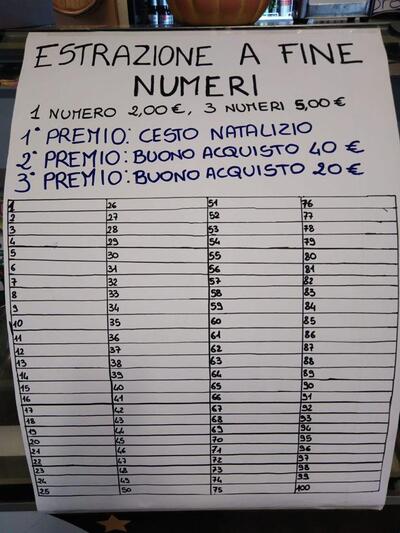 ESTRAZIONE A FINE
NUMERI
1 NUMERO 2,00 €, 3 NUMERI 5,00 €
1° PREMIO: CESTO NATALIZIO
2° PREMIO: BUONO ACQUISTO 40 €
3° PREMIO: BUONO ACQUISTO 20 €
1 26 51 76
2 27 52 77
3 28 53 78
4 29 54 79
5 30 55 80
6 31 56 81
7 32 57 82
8 33 58 83
9 34 59 84
10 35 60 85
11 36 61 86
12 37 62 87
13 38 63 88
14 39 64 89
15 40 65 90
16 41 66 91
17 42 67 92
18 43 68 93
19 44 69 94
20 45 70 95
21 46 71 96
22 47 72 97
23 48 73 98
24 49 74 99
25 50 75 100